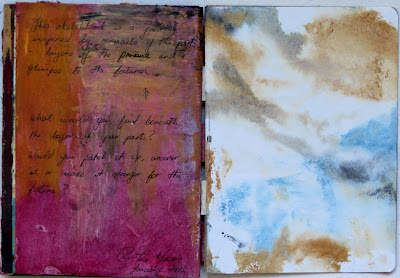 This sketchbook is a
of the past
layers of the present and
glimpses to the future.
What would you find beneath
the layers of your past?
Would you patch it up, uncover
it or make it stronger for the
future?